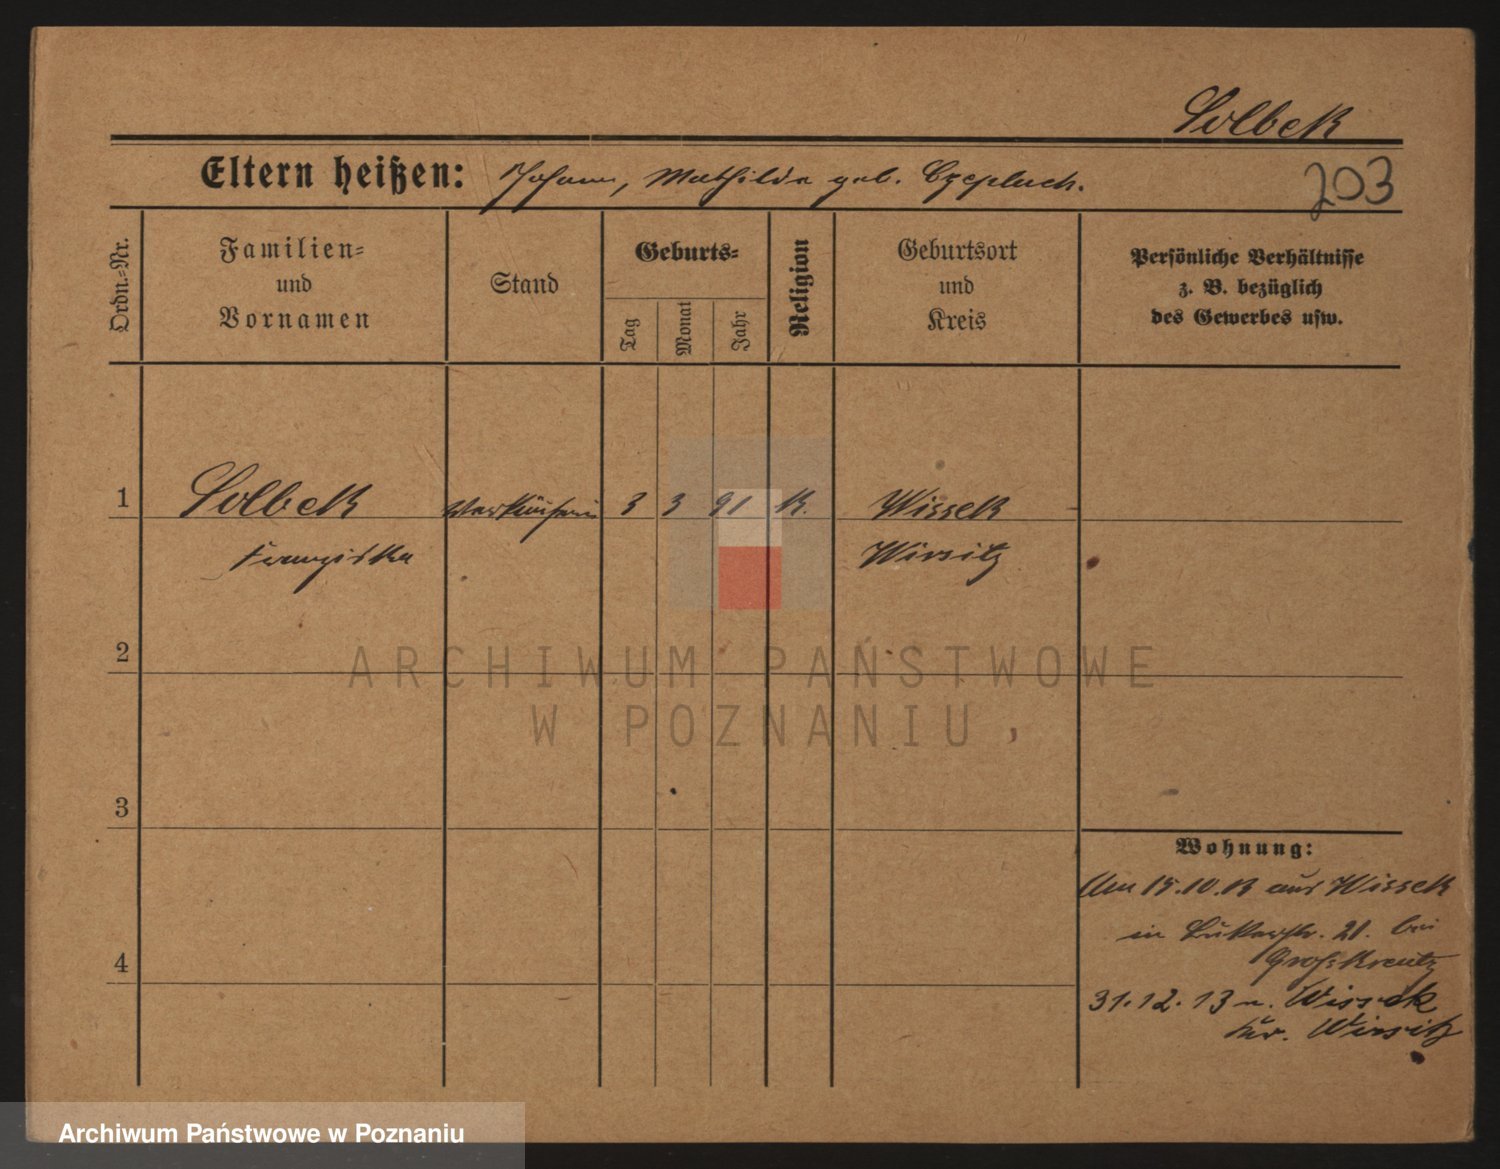 Solbek
Eltern heißen: Johann, Mathilde geb. Czepluch.
203
Ordn.=Nr.
Familien=
und
Vornamen
Stand
Geburts=
Tag
Monat
Jahr
Religion
Geburtsort
und
Kreis
Persönliche Verhältnisse
z. B. bezüglich
des Gewerbes usw.
1 Solbek Verkäuferin 3 3 91 K. Wissek
Franziska Wirsitz
2
ARCHIWUM PAŃSTWOWE
W POZNANIU
3
Wohnung:
Am 15.10.13 aus Wissek
in 21. bei
4
Großkreutz
31.12.13 n. Wissek
Kr. Wirsitz
Archiwum Państwowe w Poznaniu